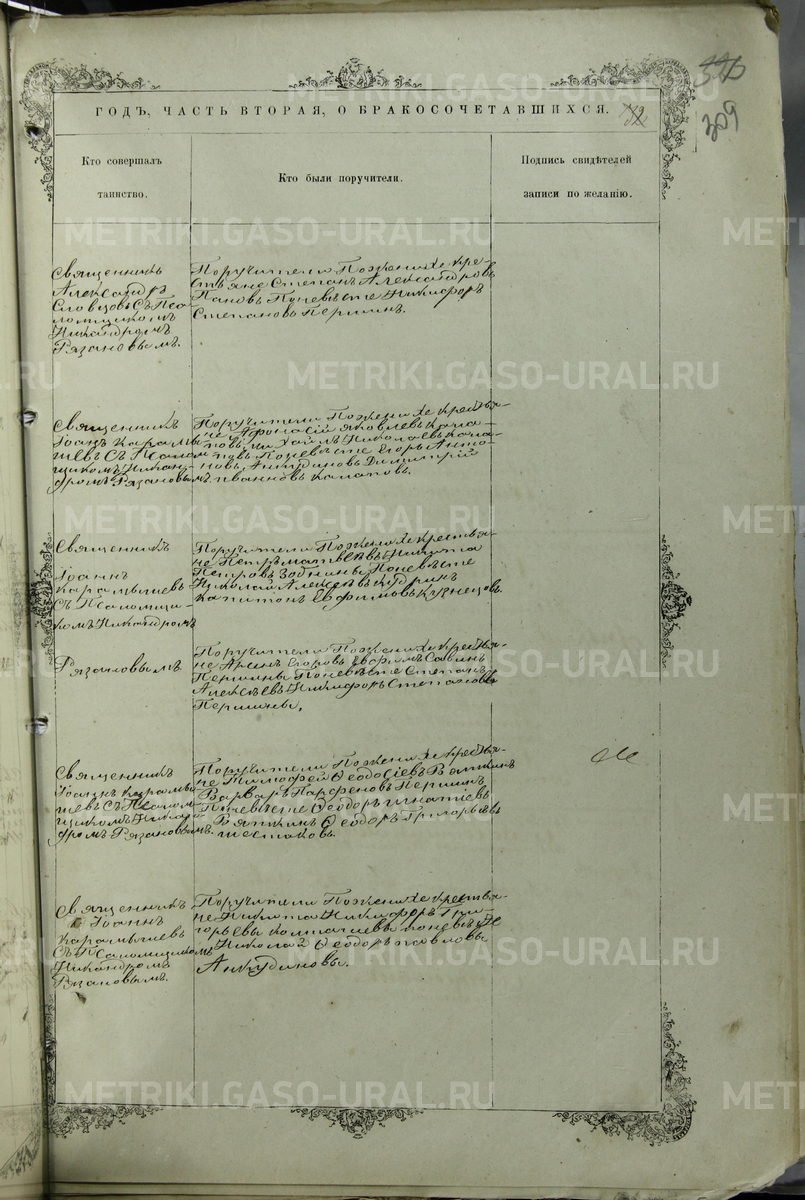 309
ГОДЪ, ЧАСТЬ ВТОРАЯ, О БРАКОСОЧЕТАВШИХСЯ.
Кто совершалъ
таинство.
Кто были поручители.
Подпись свидѣтелей
записи по желанію.
METRIKI.GASO-URAL.RU
Священникъ
Александръ
Словцовъ Съ Пса
ломщикомъ
Никандромъ
Рязановымъ.
Поручители По женихе кре-
стьяне Степанъ Александровъ
Пановъ По невѣсте Никифоръ
Степановъ Першинъ.
Священникъ
Іоанъ Карамы
шевъ Съ Псалом
щикомъ Никан-
дромъ Рязановымъ.
Поручители По женихе крестья-
не Афонасій Яковлевъ
Михаилъ Николаевъ
По невѣсте Егоръ
Анкудиновъ Димитрій
Ивановъ
Священникъ
Іоаннъ
Карамышевъ
Съ Псаломщи-
комъ Никандромъ
Рязановымъ
Поручители По женихе крестья-
не Петръ Матвѣевъ Никита
Петровъ По невѣсте
Николай Алексѣевъ Кудринъ
Капитонъ Евфимовъ Кузнецовъ.
Поручители По женихе крестья-
не Егоровъ Евфимъ Савинъ
Першины По невѣсте Степанъ
Алексѣевъ Никифоръ Степановъ
Першины.
Священникъ
Іоанъ Карамы
шевъ Съ Псалом
щикомъ Никан
дромъ Рязановымъ.
Поручители По женихе крестья-
не Тимофей Ѳеодосіевъ Вяткинъ
Парфеновъ Першинъ
По невѣсте Ѳеодоръ Игнатіевъ
Вяткинъ Ѳеодоръ Григорьевъ
Шестаковъ.
Священникъ
Іоаннъ
Карамышевъ
Съ Псаломщикомъ
Никандромъ
Рязановымъ.
Поручители По женихе крестья-
не Никита Никифоръ Гри-
горьевы По невѣсте
Николай Ѳеодоръ Павловы
Анкудиновы.